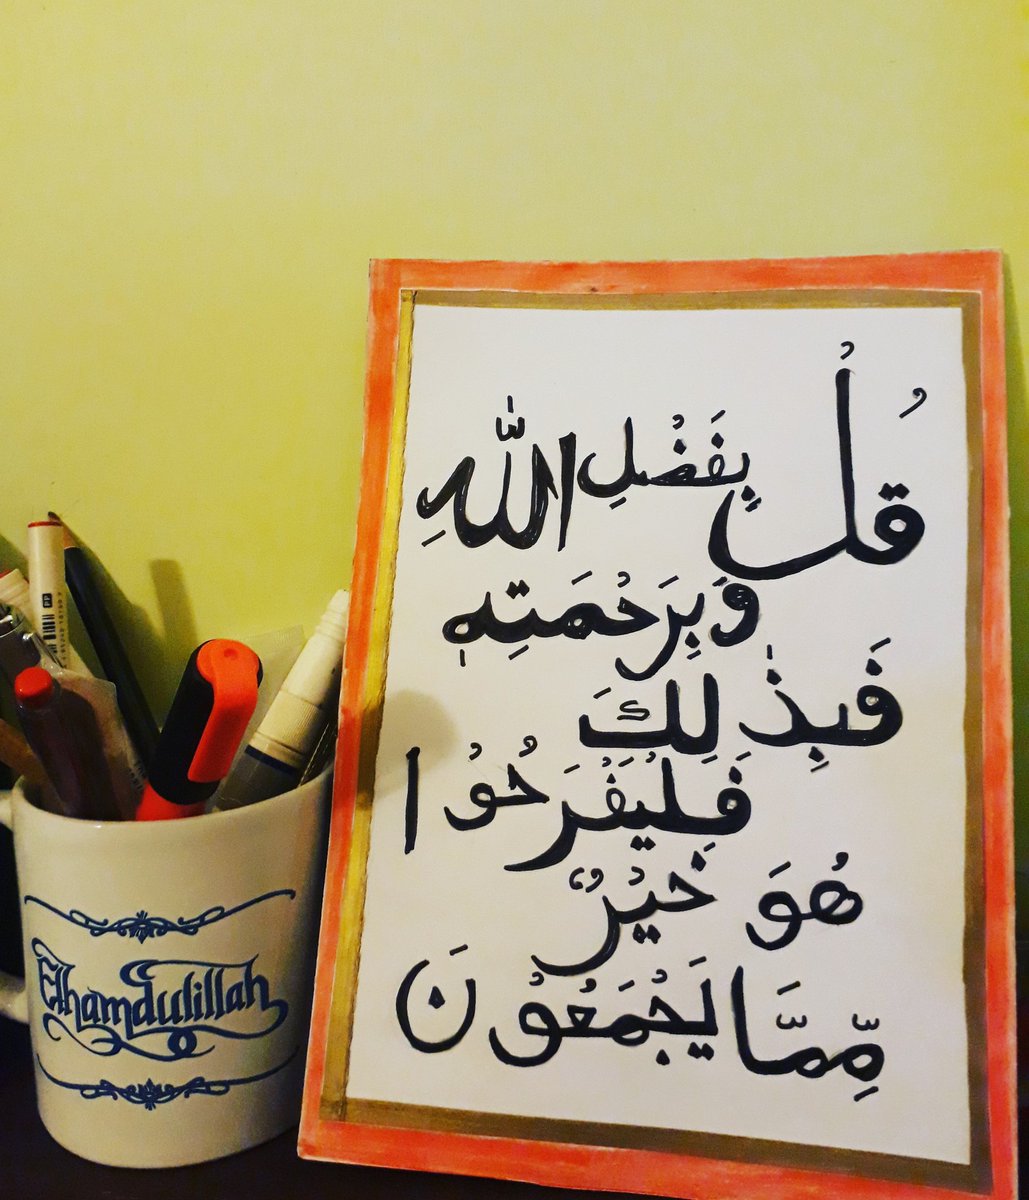 قُلْ بِفَضْلِ اللّٰهِ
وَبِرَحْمَتِهٖ
فَبِذٰلِكَ
فَلْيَفْرَحُوْا
هُوَ خَيْرٌ
مِّمَّا يَجْمَعُوْنَ
Elhamdulillah